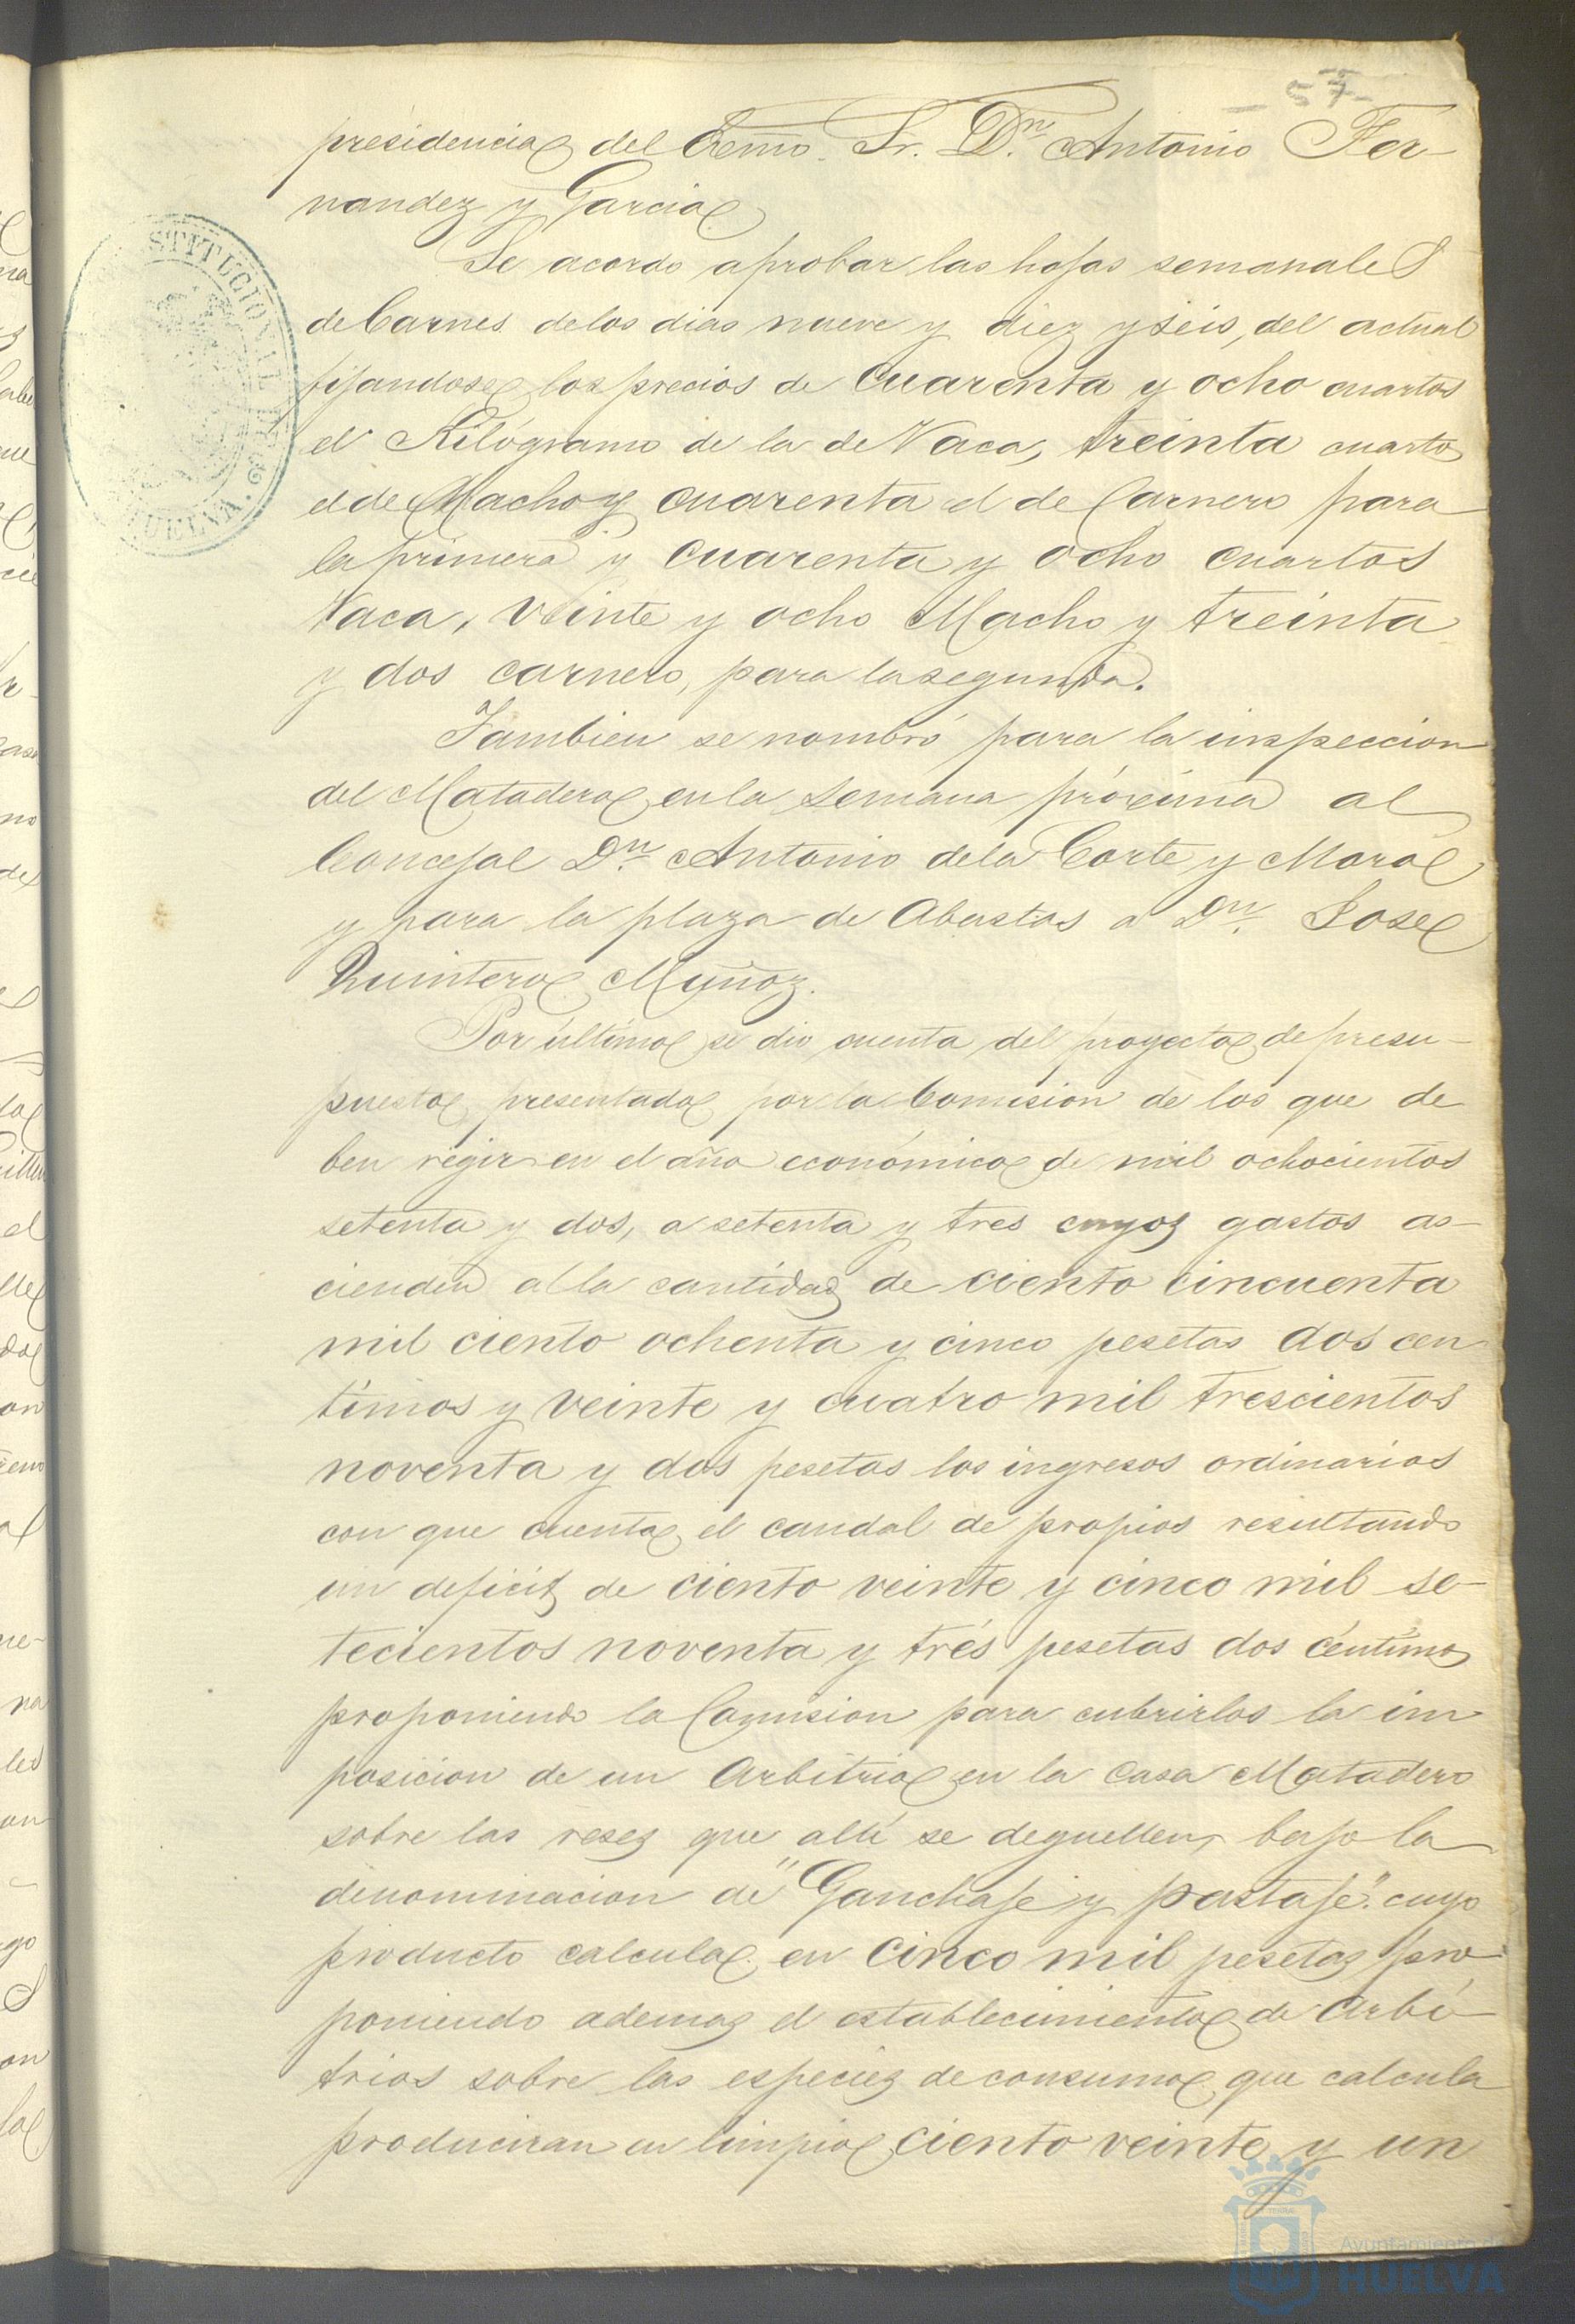 57
presidencia del Exmo. Sr. Dn. Antonio Fer-
nandez y Garcia
Se acordo aprobar las hojas semanales
de Carnes de los dias nueve y diez y seis, del actual
fijandose los precios de cuarenta y ocho cuartos
el Kilógramo de la de Vaca, treinta cuartos
el de Macho y cuarenta el de Carnero para
la primera y cuarenta y ocho cuartos
Vaca, veinte y ocho Macho y treinta
y dos carnero, para la segunda.
Tambien se nombró para la inspeccion
del Matadero en la semana próxima al
Concejal Dn. Antonio de la Corte y Mora
y para la plaza de Abastos a Dn. Jose
Quintero Muñoz.
Por último se dio cuenta del proyecto de presu-
puesto presentado por la Comision de los que de
ben regir en el año económico de mil ochocientos
setenta y dos, a setenta y tres cuyos gastos as-
cienden a la cantidad de ciento cincuenta
mil ciento ochenta y cinco pesetas dos cen
timos y veinte y cuatro mil trescientos
noventa y dos pesetas los ingresos ordinarios
con que cuenta el caudal de propios resultando
un deficit de ciento veinte y cinco mil se-
tecientos noventa y trés pesetas dos céntimos
proponiendo la Comision para cubrirlos la im
posicion de un Arbitrio en la Casa Matadero
sobre las reses que alli se deguellen, bajo la
denominacion de "Ganchaje y pastaje". cuyo
producto calcula en cinco mil pesetas pro-
poniendo ademas el establecimiento de arbi-
trios sobre las especies de consumo que calcula
produciran en limpio ciento veinte y un
STITUCIONAL DE
HUELVA.
Ayuntamiento de
HUELVA